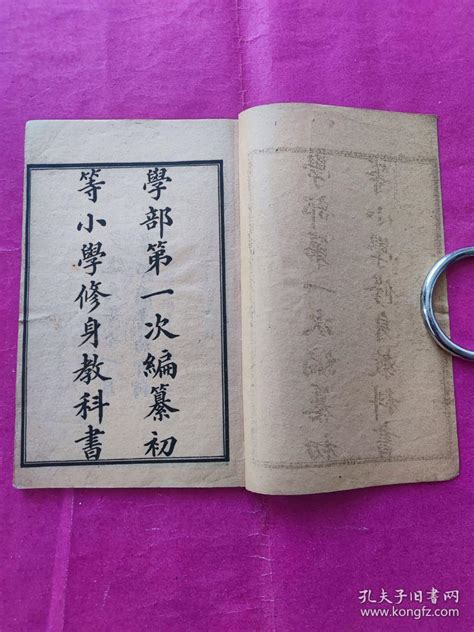 學部第一次編纂初
等小學修身教科書
孔夫子旧书网
www.kongfz.com